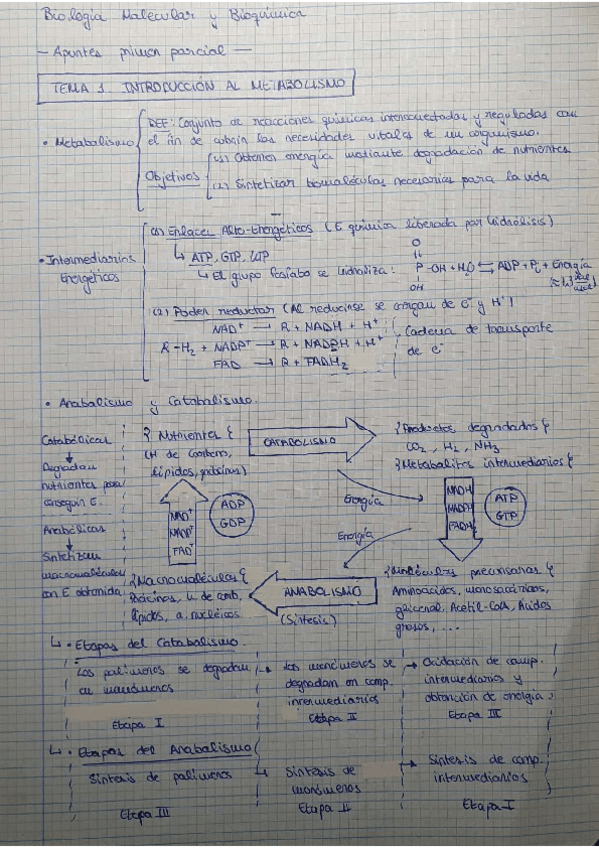 Biología Molecular y Bioquímica
— Apuntes primer parcial —
TEMA 1. INTRODUCCIÓN AL METABOLISMO
• Metabolismo
DEF: Conjunto de reacciones químicas interconectadas y reguladas con
el fin de cubrir las necesidades vitales de un organismo.
Objetivos
(1) Obtener energía mediante degradación de nutrientes
(2) Sintetizar biomoléculas necesarias para la vida
• Intermediarios
Energéticos
(1) Enlaces Alto-Energéticos (E química liberada por hidrólisis)
↳ ATP, GTP, UTP
↳ El grupo fosfato se hidroliza:
O
P-OH + H2O ⇆ ADP + Pi + Energía
OH
(2) Poder reductor (Al reducirse se cargan de e- y H+)
NAD+ → R + NADH + H+
R-H2 + NADP+ → R + NADPH + H+
FAD → R + FADH2
Cadena de transporte
de e-
• Anabolismo y Catabolismo.
Catabólicas
↓
Degradan
nutrientes para
conseguir E.
Anabólicas
↓
Sintetizan
macromoléculas
con E obtenida.
} Nutrientes {
(H de carbono,
lípidos, proteínas)
CATABOLISMO
} Productos degradados {
CO2, H2, NH3
} Metabolitos intermediarios {
NAD+
NADP+
FAD+
ADP
GDP
Energía
Energía
NADH
NADPH
FADH2
ATP
GTP
} Macromoléculas {
Proteínas, H. de carb,
lípidos, a. nucleicos
ANABOLISMO
(Síntesis)
} Moléculas precursoras {
Aminoácidos, monosacáridos,
glicerol, Acetil-CoA, Ácidos
grasos, ...
↳ • Etapas del Catabolismo.
Los polímeros se degradan
en monómeros
Etapa I
→ Los monómeros se
degradan en comp.
intermediarios
Etapa II
→ Oxidación de comp.
intermediarios y
obtención de energía
Etapa III
↳ • Etapas del Anabolismo
Síntesis de polímeros
Etapa III
↳ Síntesis de
monómeros
Etapa II
→ Síntesis de comp.
intermediarios
Etapa I